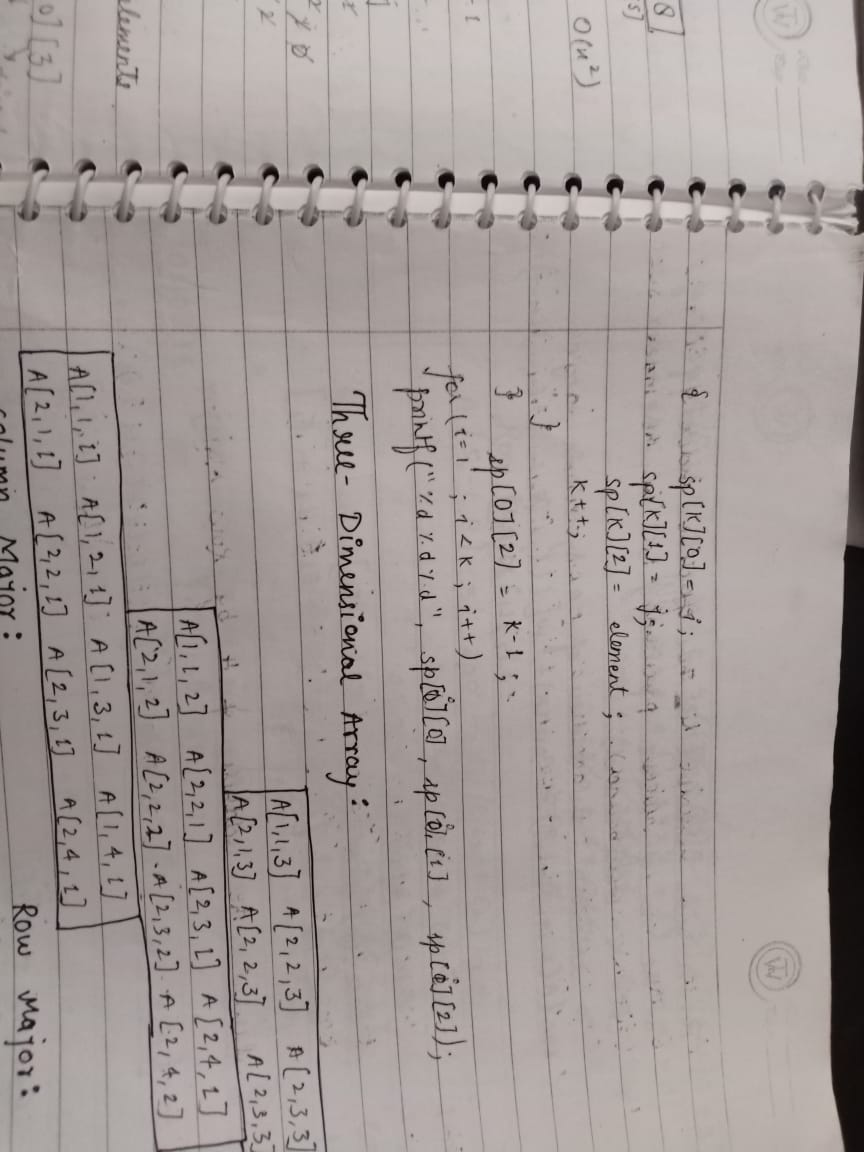 8]
5]
O(n²)
- 1
elements
0][3]
{ sp[K][0] = i;
sp[K][1] = j;
sp[K][2] = element;
K++;
}
} sp[0][2] = K-1;
for (i=1 ; i<K ; i++)
printf("%d %d %d", sp[i][0], sp[i][1], sp[i][2]);
Three-Dimensional Array:
A[1,1,3] A[2,2,3] A[2,3,3]
A[2,1,3] A[2,2,3] A[2,3,3]
A[1,1,2] A[2,2,1] A[2,3,1] A[2,4,1]
A[2,1,2] A[2,2,2] A[2,3,2] A[2,4,2]
A[1,1,1] A[1,2,1] A[1,3,1] A[1,4,1]
A[2,1,1] A[2,2,1] A[2,3,1] A[2,4,1]
Column Major: Row Major: